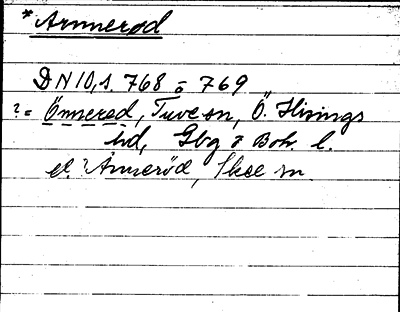 *Annerød
DN 10, s. 768 o 769
? = Önnered, Tuve sn, Ö. Hisings
hd, Gbg o Boh. l.
el. ? Anneröd, Skee sn.